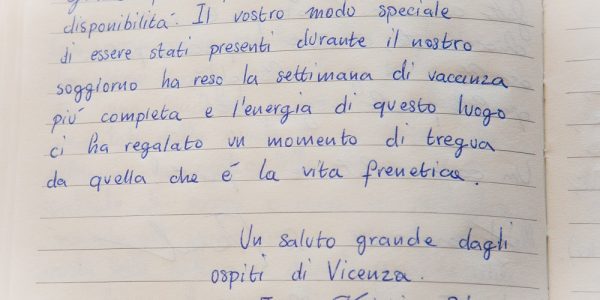 disponibilità. Il vostro modo speciale
di essere stati presenti durante il nostro
soggiorno ha reso la settimana di vacanza
più completa e l'energia di questo luogo
ci ha regalato un momento di tregua
da quella che é la vita frenetica.
Un saluto grande dagli
ospiti di Vicenza.